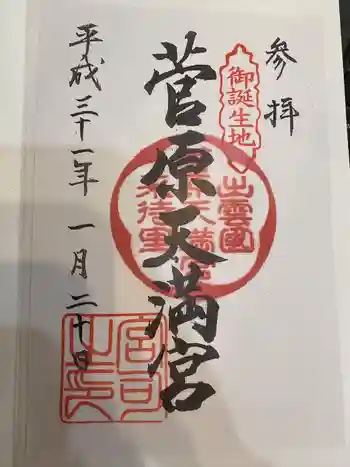 参拝
御誕生地
菅原天満宮
出雲國
平成三十一年 一月二十日
宮司之印